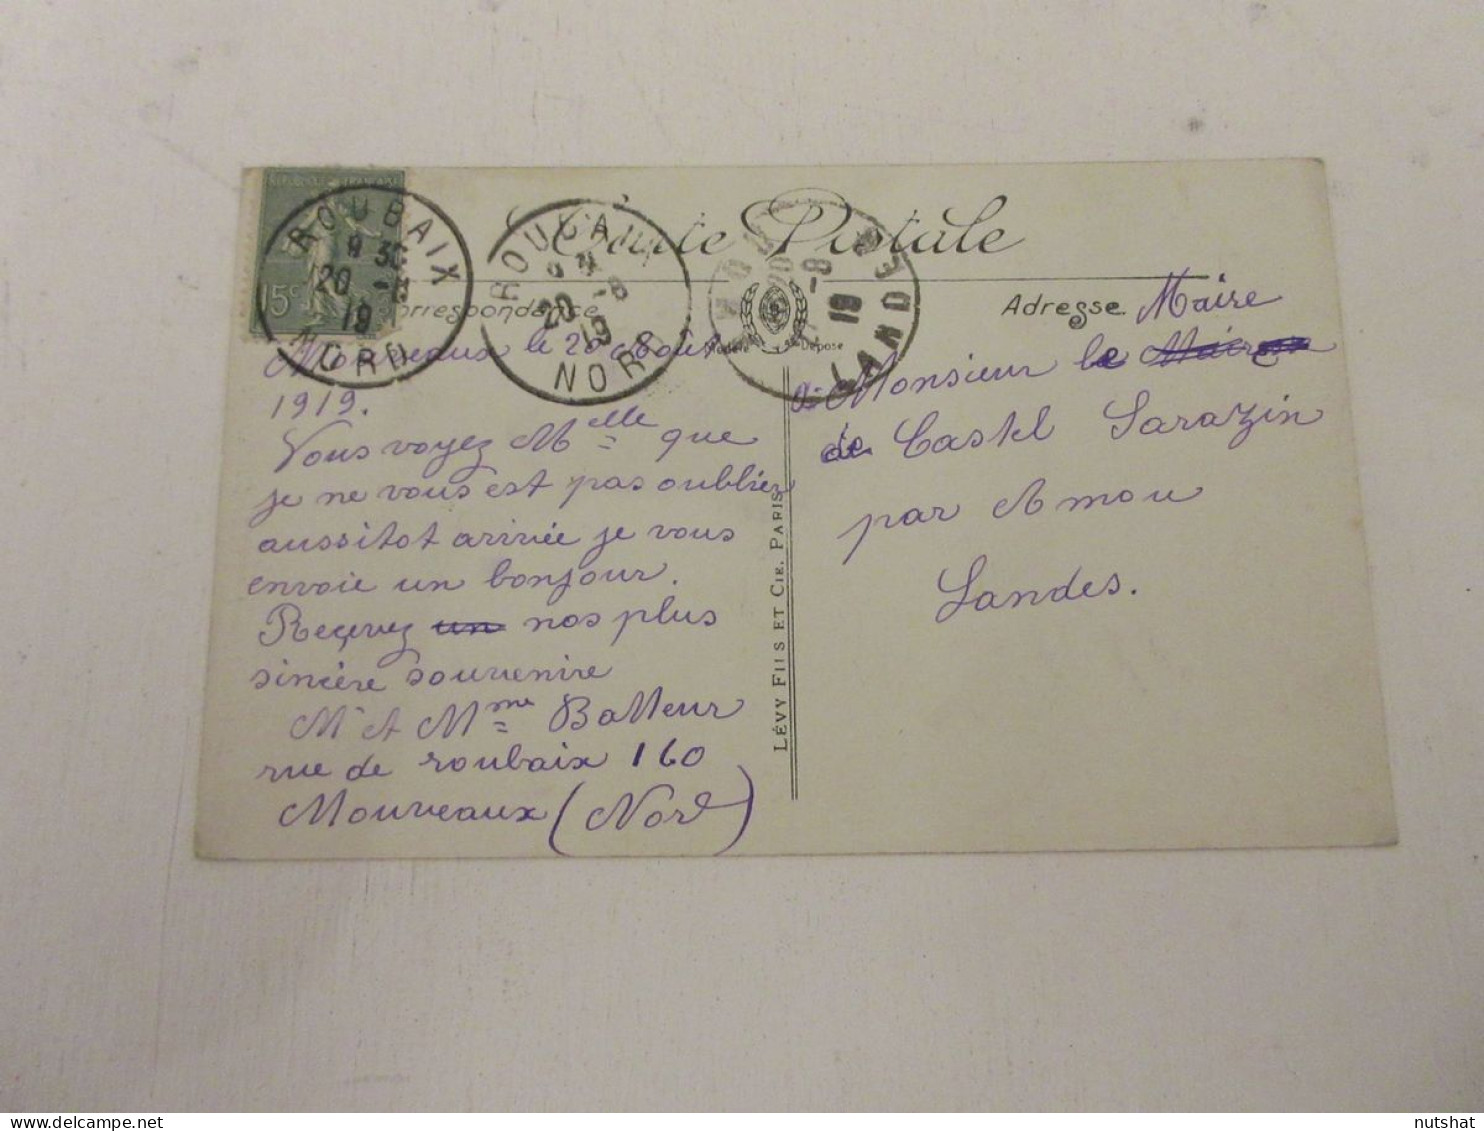 Carte Postale
REPUBLIQUE FRANCAISE
15c
ROUBAIX
9 30
20 -8
19
NORD
ROUBAIX
20 -8
19
NORD
20 -8
19
LANDES
Correspondance
Modèle Déposé
Adresse
Mouveaux le 20 Août
1919.
Vous voyez Melle que
je ne vous est pas oublier
aussitot arivée je vous
envoie un bonjour.
Reçevez un nos plus
sincère souvenire
Mr et Mme Batteur
rue de roubaix 160
Mouveaux (Nord)
LÉVY FILS ET CIE. PARIS
Maire
à Monsieur le Máire
de Castel Sarazin
par Amou
Landes.
nutshat